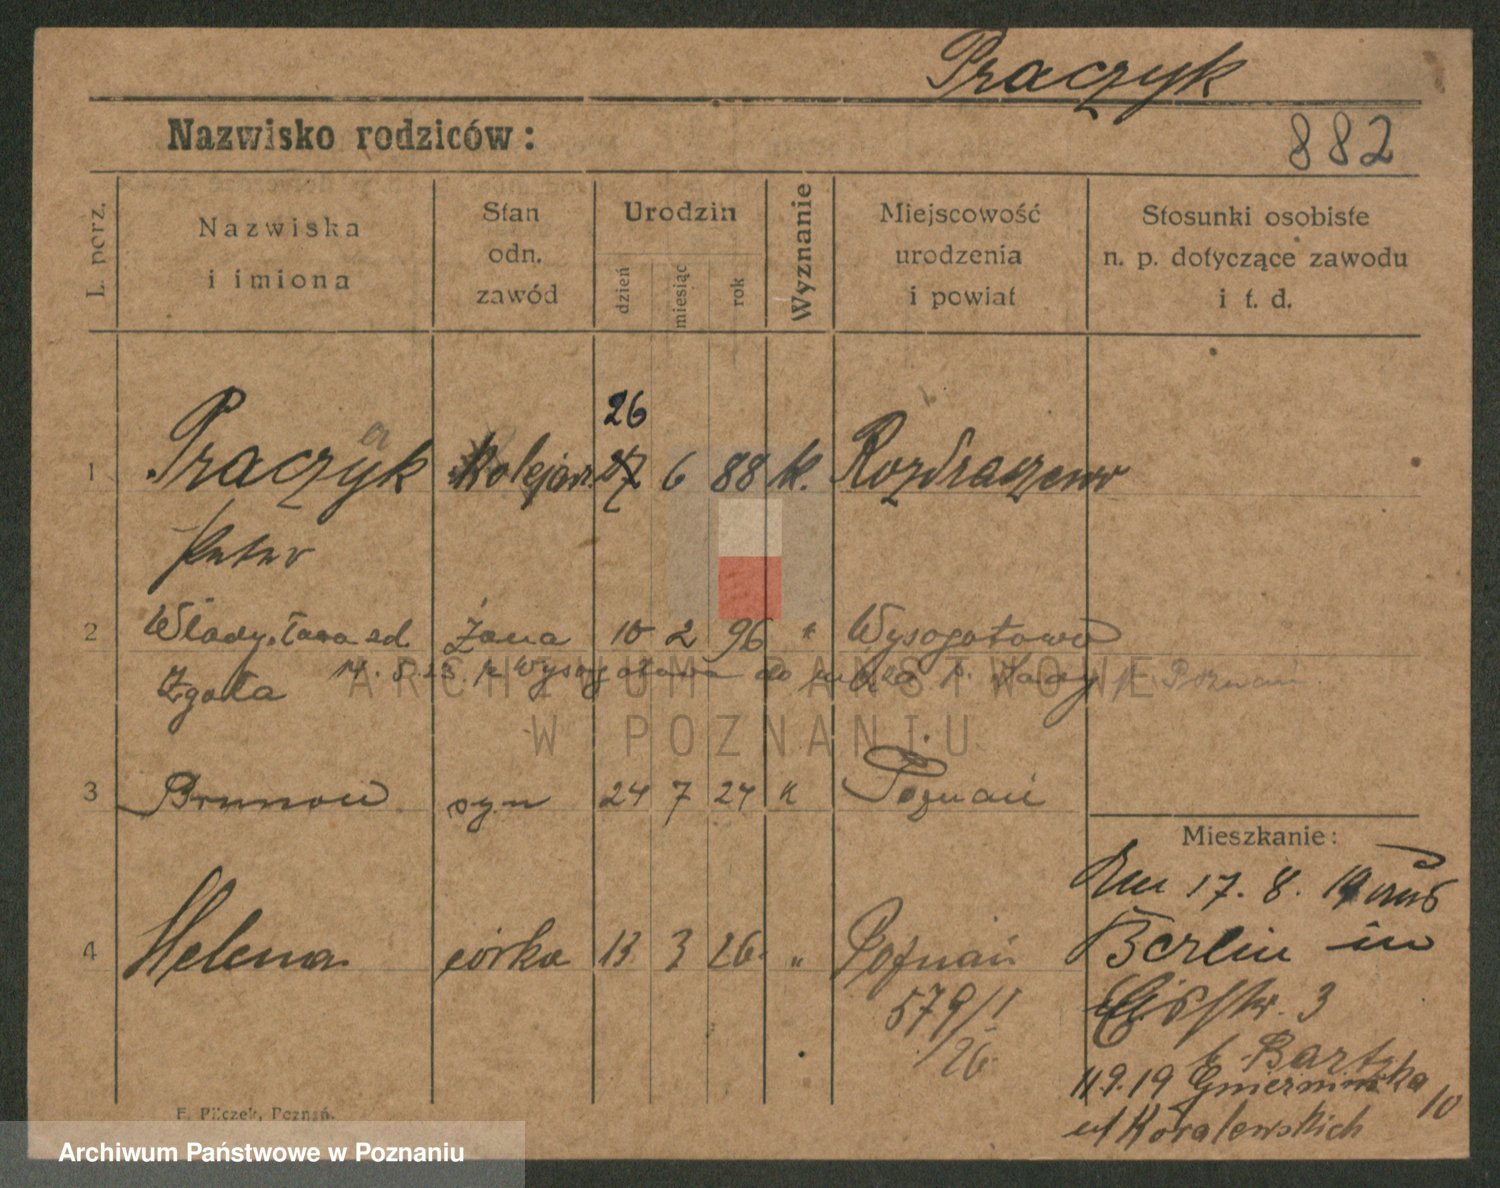 Praczyk
Nazwisko rodziców:
882
L. porz.
Nazwiska
i imiona
Stan
odn.
zawód
Urodzin
dzień
miesiąc
rok
Wyznanie
Miejscowość
urodzenia
i powiat
Stosunki osobiste
n. p. dotyczące zawodu
i t. d.
26
a
1 Praczyk Kolejarz. 27 6 88 k. Rozdraszewo
Peter
2 Władysława zd. żona 10 2 96 " Wysogotowo
Zgoła
14. 5. 23. z Wysogotowa do p. Poznań.
ARCHIWUM PAŃSTWOWE
W POZNANIU
3 Brunon syn 24 7 24 k Poznań
Mieszkanie:
Am 17. 8. 19 aus
Berlin in
3
4 Helena córka 13 3 26. " Poznań
579/I
/26.
11.9.19 10
F. Pilczek, Poznań.
Archiwum Państwowe w Poznaniu